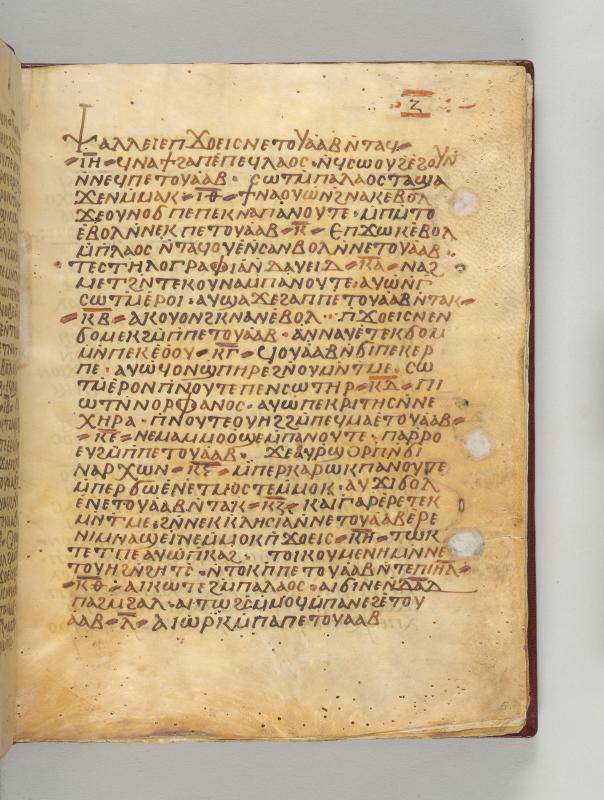 ⲍ
ⲯⲁⲗⲗⲉⲓⲉⲡϫⲟⲉⲓⲥⲛⲉⲧⲟⲩⲁⲁⲃⲛ̄ⲧⲁϥ
ⲓ̅ⲏ̅ ϥⲛⲁϯϩⲁⲡⲉⲡⲉϥⲗⲁⲟⲥ ⲛϥⲥⲱⲟⲩϩⲉϩⲟⲩⲛ
ⲛ̄ⲛⲉϥⲡⲉⲧⲟⲩⲁⲁⲃ ⲥⲱⲧⲙ̄ⲡⲁⲗⲁⲟⲥⲧⲁϣⲁ
ϫⲉⲛⲙ̄ⲙⲁⲕ ⲓ̅ⲑ̅ ϯⲛⲁⲟⲩⲱⲛϩⲛⲁⲕⲉⲃⲟⲗ
ϫⲉⲟⲩⲛⲟϭⲡⲉⲡⲉⲕⲣⲁⲛⲡⲁⲛⲟⲩⲧⲉ ⲙ̄ⲡⲙ̄ⲧⲟ
ⲉⲃⲟⲗⲛ̄ⲛⲉⲕⲡⲉⲧⲟⲩⲁⲁⲃ ⲕ̅ ⲉⲡϫⲱⲕⲉⲃⲟⲗ
ⲙ̄ⲡⲗⲁⲟⲥ ⲛ̄ⲧⲁϥⲟⲩⲉⲛ̄ⲥⲁⲛⲃⲟⲗⲛ̄ⲛⲉⲧⲟⲩⲁⲁⲃ
ⲧⲉⲥⲧⲏⲗⲟⲅⲣⲁⲫⲓⲁⲛ̄ⲇⲁⲩⲉⲓⲇ ⲕ̅ⲁ̅ ⲛⲁϩ
ⲙⲉⲧϩⲛ̄ⲧⲉⲕⲟⲩⲛⲁⲙⲡⲁⲛⲟⲩⲧⲉ ⲁⲩⲱⲛ̄ⲅ
ⲥⲱⲧⲙ̄ⲉⲣⲟⲓ ⲁⲩϣⲁϫⲉϩⲁⲡⲡⲉⲧⲟⲩⲁⲁⲃⲛ̄ⲧⲁⲕ
ⲕ̅ⲃ̅ ⲁⲕⲟⲩⲟⲛϩⲕⲛⲁⲛⲉⲃⲟⲗ ⲡϫⲟⲉⲓⲥⲛⲉⲛ
ϭⲟⲙⲉⲕϩⲙ̄ⲡⲡⲉⲧⲟⲩⲁⲁⲃ ⲁⲛⲛⲁⲩⲉⲧⲉⲕϭⲟⲙ
ⲙⲛ̄ⲡⲉⲕⲉⲟⲟⲩ ⲕ̅ⲅ̅ ϥⲟⲩⲁⲁⲃⲛ̄ϭⲓⲡⲉⲕⲉⲣ
ⲡⲉ ⲁⲩⲱϥⲟⲛϣⲡⲏⲣⲉϩⲛⲟⲩⲙⲛ̄ⲧⲙⲉ ⲥⲱ
ⲧⲙ̄ⲉⲣⲟⲛⲡⲛⲟⲩⲧⲉⲡⲉⲛⲥⲱⲧⲏⲣ ⲕ̅ⲇ̅ ⲡⲓ
ⲱⲧⲛ̄ⲛⲟⲣⲫⲁⲛⲟⲥ ⲁⲩⲱⲡⲉⲕⲣⲓⲧⲏⲥⲛ̄ⲛⲉ
ⲭⲏⲣⲁ ⲡⲛⲟⲩⲧⲉⲟⲩⲏϩϩⲙ̄ⲡⲉϥⲙⲁⲉⲧⲟⲩⲁⲁⲃ
ⲕ̅ⲉ̅ ⲛⲉⲙⲁⲙⲙⲟⲟϣⲉⲙ̄ⲡⲁⲛⲟⲩⲧⲉ ⲡⲁⲣⲣⲟ
ⲉⲧϩⲙ̄ⲡⲡⲉⲧⲟⲩⲁⲁⲃ ϫⲉⲁⲩⲣϣⲟⲣⲡⲛ̄ϭⲓ
ⲛⲁⲣⲭⲱⲛ ⲕ̅ⲋ̅ ⲙ̄ⲡⲉⲣⲕⲁⲣⲱⲕⲡⲁⲛⲟⲩⲧⲉ
ⲙ̄ⲡⲉⲣϭⲱⲉⲛⲉⲧⲙⲟⲥⲧⲉⲙ̄ⲙⲟⲕ ⲁⲩϫⲓϭⲟⲗ
ⲉⲛⲉⲧⲟⲩⲁⲁⲃⲛ̄ⲧⲁⲕ ⲕ̅ⲍ̅ ⲕⲁⲓⲅⲁⲣⲉⲣⲉⲧⲉⲕ
ⲙⲛ̄ⲧⲙⲉ ϩⲛ̄ⲛⲉⲕⲕⲗⲏⲥⲓⲁⲛ̄ⲛⲉⲧⲟⲩⲁⲁⲃⲉⲣⲉ
ⲛⲓⲙⲛⲁϣⲉⲓⲛⲉⲙ̄ⲙⲟⲕⲡϫⲟⲉⲓⲥ ⲕ̅ⲏ̅ ⲧⲱⲕ
ⲧⲉⲧⲡⲉⲁⲩⲱⲡⲕⲁϩ ⲧⲟⲓⲕⲟⲩⲙⲉⲛⲏⲙⲛ̄ⲛⲉ
ⲧⲟⲩⲏϩⲛ̄ϩⲏⲧⲥ̄ ⲛ̄ⲧⲟⲕⲡⲡⲉⲧⲟⲩⲁⲁⲃⲛ̄ⲧⲉⲡⲓ̅ⲏ̅ⲗ̅
ⲕ̅ⲑ̅ ⲁⲓⲕⲱⲧⲉϩⲙ̄ⲡⲁⲗⲁⲟⲥ ⲁⲓϭⲓⲛⲉⲛ̄ⲇ̅ⲁ̅ⲇ̅
ⲡⲁϩⲙ̄ϩⲁⲗ ⲁⲓⲧⲱϩⲥ̄ⲙ̄ⲙⲟϥⲙ̄ⲡⲁⲛⲉϩⲉⲧⲟⲩ
ⲁⲁⲃ ⲗ̅ ⲁⲓⲱⲣⲕⲙ̄ⲡⲁⲡⲉⲧⲟⲩⲁⲁⲃ